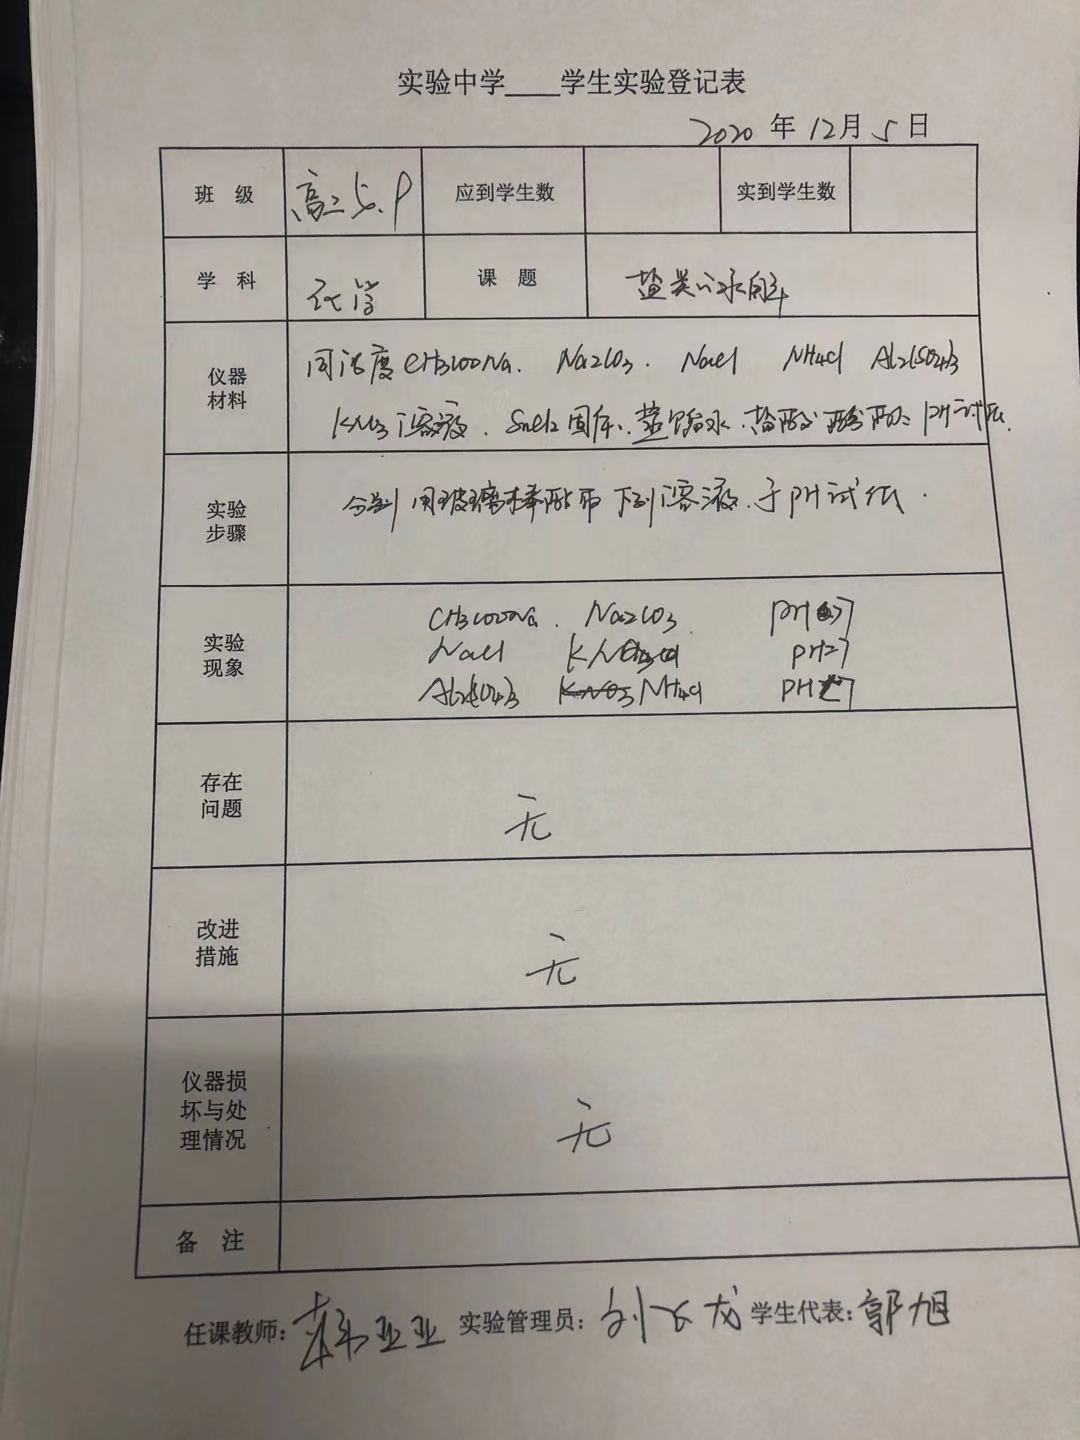 实验中学____学生实验登记表
2020 年 12月 5 日
班 级 高二5.9 应到学生数 实到学生数
学 科 化学 课 题 盐类的水解
仪器材料
同浓度CH3COONa. Na2CO3. NaCl NH4Cl Al2(SO4)3
KNO3溶液. 固体. 蒸馏水. PH试纸.
实验步骤
分别用玻璃棒蘸取下列溶液.于PH试纸.
实验现象
CH3COONa. Na2CO3. PH>7
NaCl PH=7
Al2(SO4)3 KNO3 NH4Cl PH<7
存在问题
无
改进措施
无
仪器损坏与处理情况
无
备 注
任课教师:韩亚亚 实验管理员:刘飞龙 学生代表:郭旭